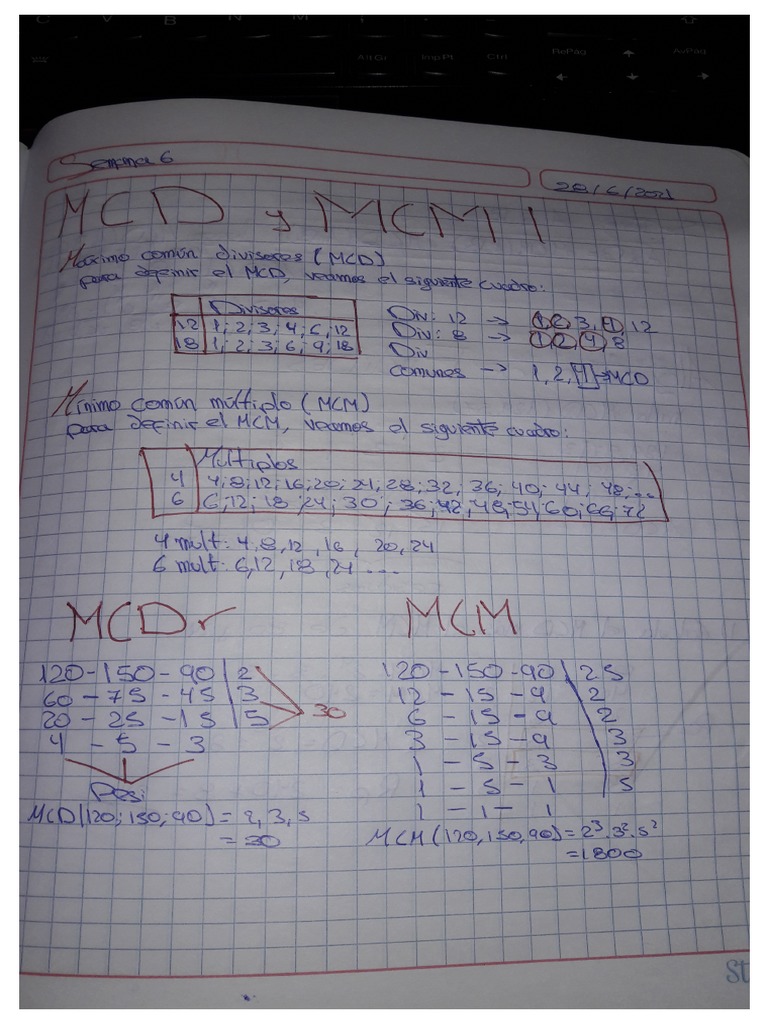 Semana 6
28/6/2021
MCD y MCM I
Máximo común divisores (MCD)
para definir el MCD, veamos el siguiente cuadro:
Divisores
12 1; 2; 3; 4; 6; 12
18 1; 2; 3; 6; 9; 18
Div: 12 -> 1, 2, 3, 4, 12
Div: 8 -> 1, 2, 4, 8
Div
comunes -> 1, 2, 4 -> MCD
Mínimo común múltiplo (MCM)
para definir el MCM, veamos el siguiente cuadro:
Múltiplos
4 4; 8; 12; 16; 20; 24; 28; 32, 36; 40; 44; 48; ...
6 6; 12; 18; 24; 30; 36; 42, 48, 54, 60; 66; 72
4 mult: 4, 8, 12, 16, 20, 24
6 mult: 6, 12, 18, 24 ....
MCD
120-150-90 | 2
60-75-45 | 3
20-25-15 | 5
30
4-5-3
Pesi
MCD(120; 150; 90) = 2, 3, 5
= 30
MCM
120-150-90 | 2 5
12-15-9 | 2
6-15-9 | 2
3-15-9 | 3
1-5-3 | 3
1-5-1 | 5
1-1-1
MCM (120, 150, 90) = 2³.3².5²
= 1800
Alt Gr
Imp Pt
Ctrl
RePág
AvPág
St